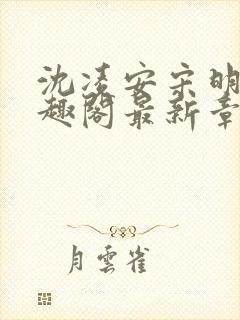 沈凌安宋明
趣阁最新章
月雲雀